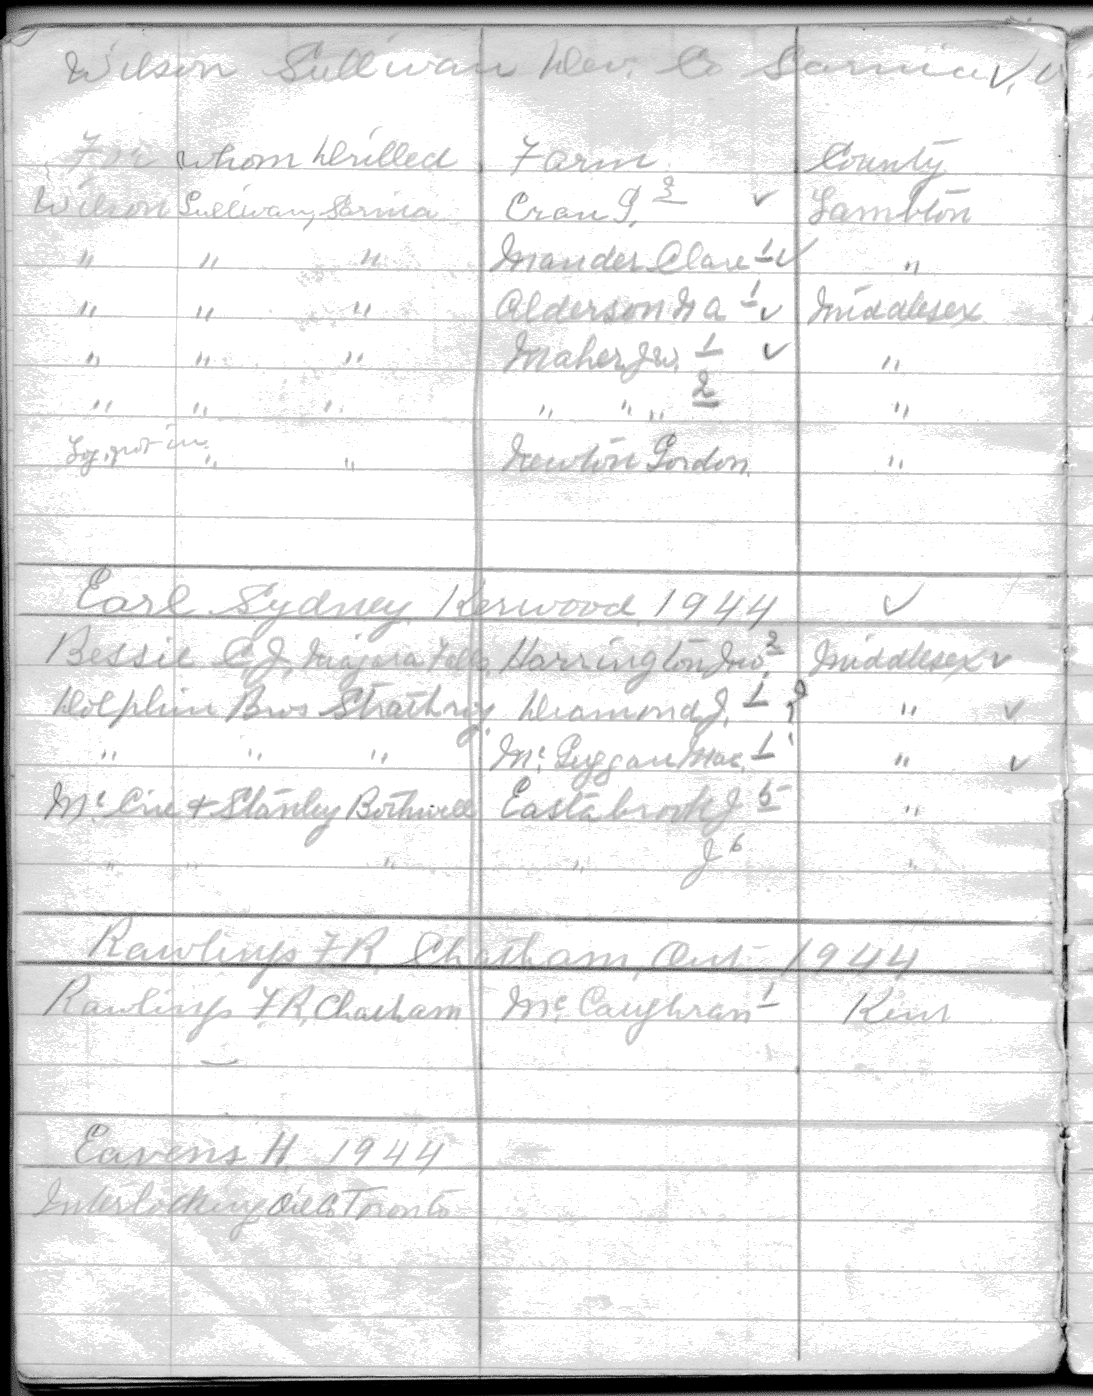 Wilson Sullivan Dev. Co Sarnia ✓ ✓
For whom Drilled Farm County
Wilson Sullivan, Sarnia Cran G, 2 ✓ Lambton
" " " Mander Clare 1 ✓ "
" " " Alderson 1 ✓ Middlesex
" " " Maher J.W. 1 ✓ "
" " " " " " 2 "
Log. not in " " Newton Gordon "
Earl Sydney Kerwood 1944 ✓
Bessie C.J. Niagara Falls, Harrington Jno. 2 Middlesex ✓
Dolphin Bros Strathroy Diamond J. 1 " ✓
" " " Mc. Guggan Mac. 1 " ✓
& Stanley Bothwell Eastabrook J 5 "
" " " " J 6 "
Rawlings F.R. Chatham, Ont 1944
Rawlings F.R, Chatham Mc. Caughran 1 Kent
Eavens H. 1944
Interlocking Oil Co Toronto